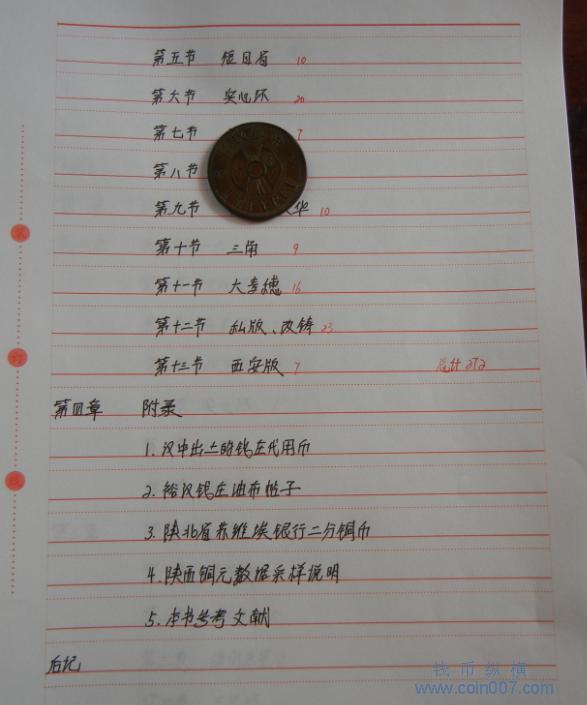 第五节 短目省 10
第六节 实心环 20
第七节 7
第八节
第九节 华 10
第十节 三角 9
第十一节 大李穗 16
第十二节 私版、改铸 23
第十三节 西安版 7 总计 272
第四章 附录
1. 汉中出土的钱庄代用币
2. 裕汉钱庄油布帖子
3. 陕北省苏维埃银行二分铜币
4. 陕西铜元数据采样说明
5. 本书参考文献
后记
订
线
钱币纵横
www.coin007.com